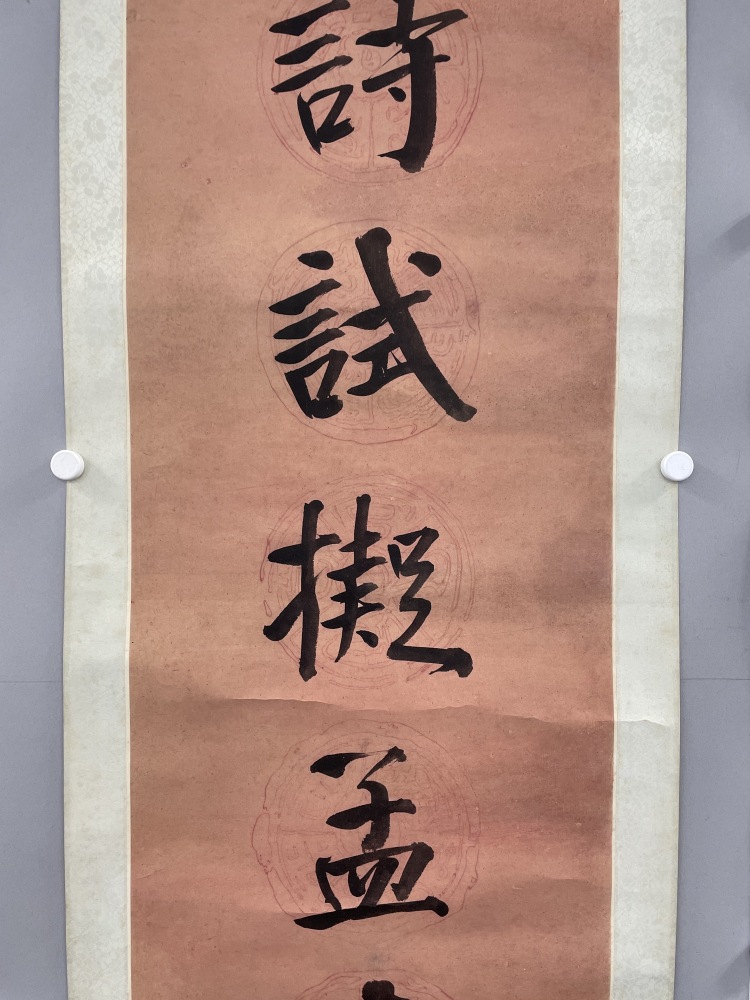 詩試擬孟